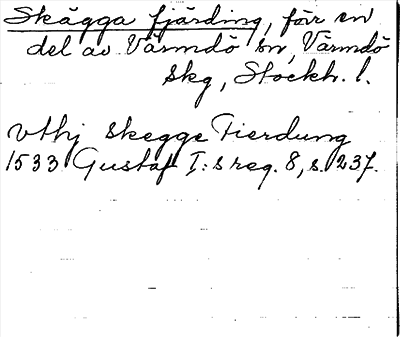 Skägga fjärding, förr en
del av Värmdö sn, Värmdö
skg, Stockh. l.
vthj skegge Fierdung
1533 Gustaf I:s reg. 8, s. 237.